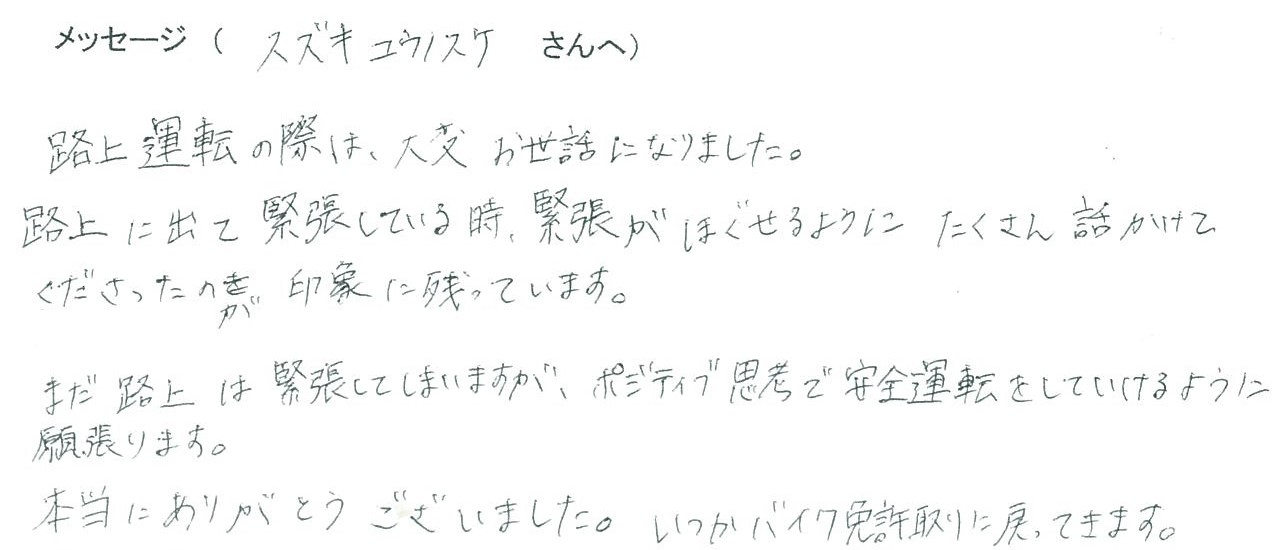 メッセージ ( スズキ ユウノスケ さんへ)
路上運転の際は、大変お世話になりました。
路上に出て緊張している時、緊張がほぐせるように たくさん話かけて
くださったのが 印象に残っています。
まだ路上は緊張してしまいますが、ポジティブ思考で安全運転をしていけるように
願張ります。
本当にありがとうございました。いつかバイク免許取りに戻ってきます。